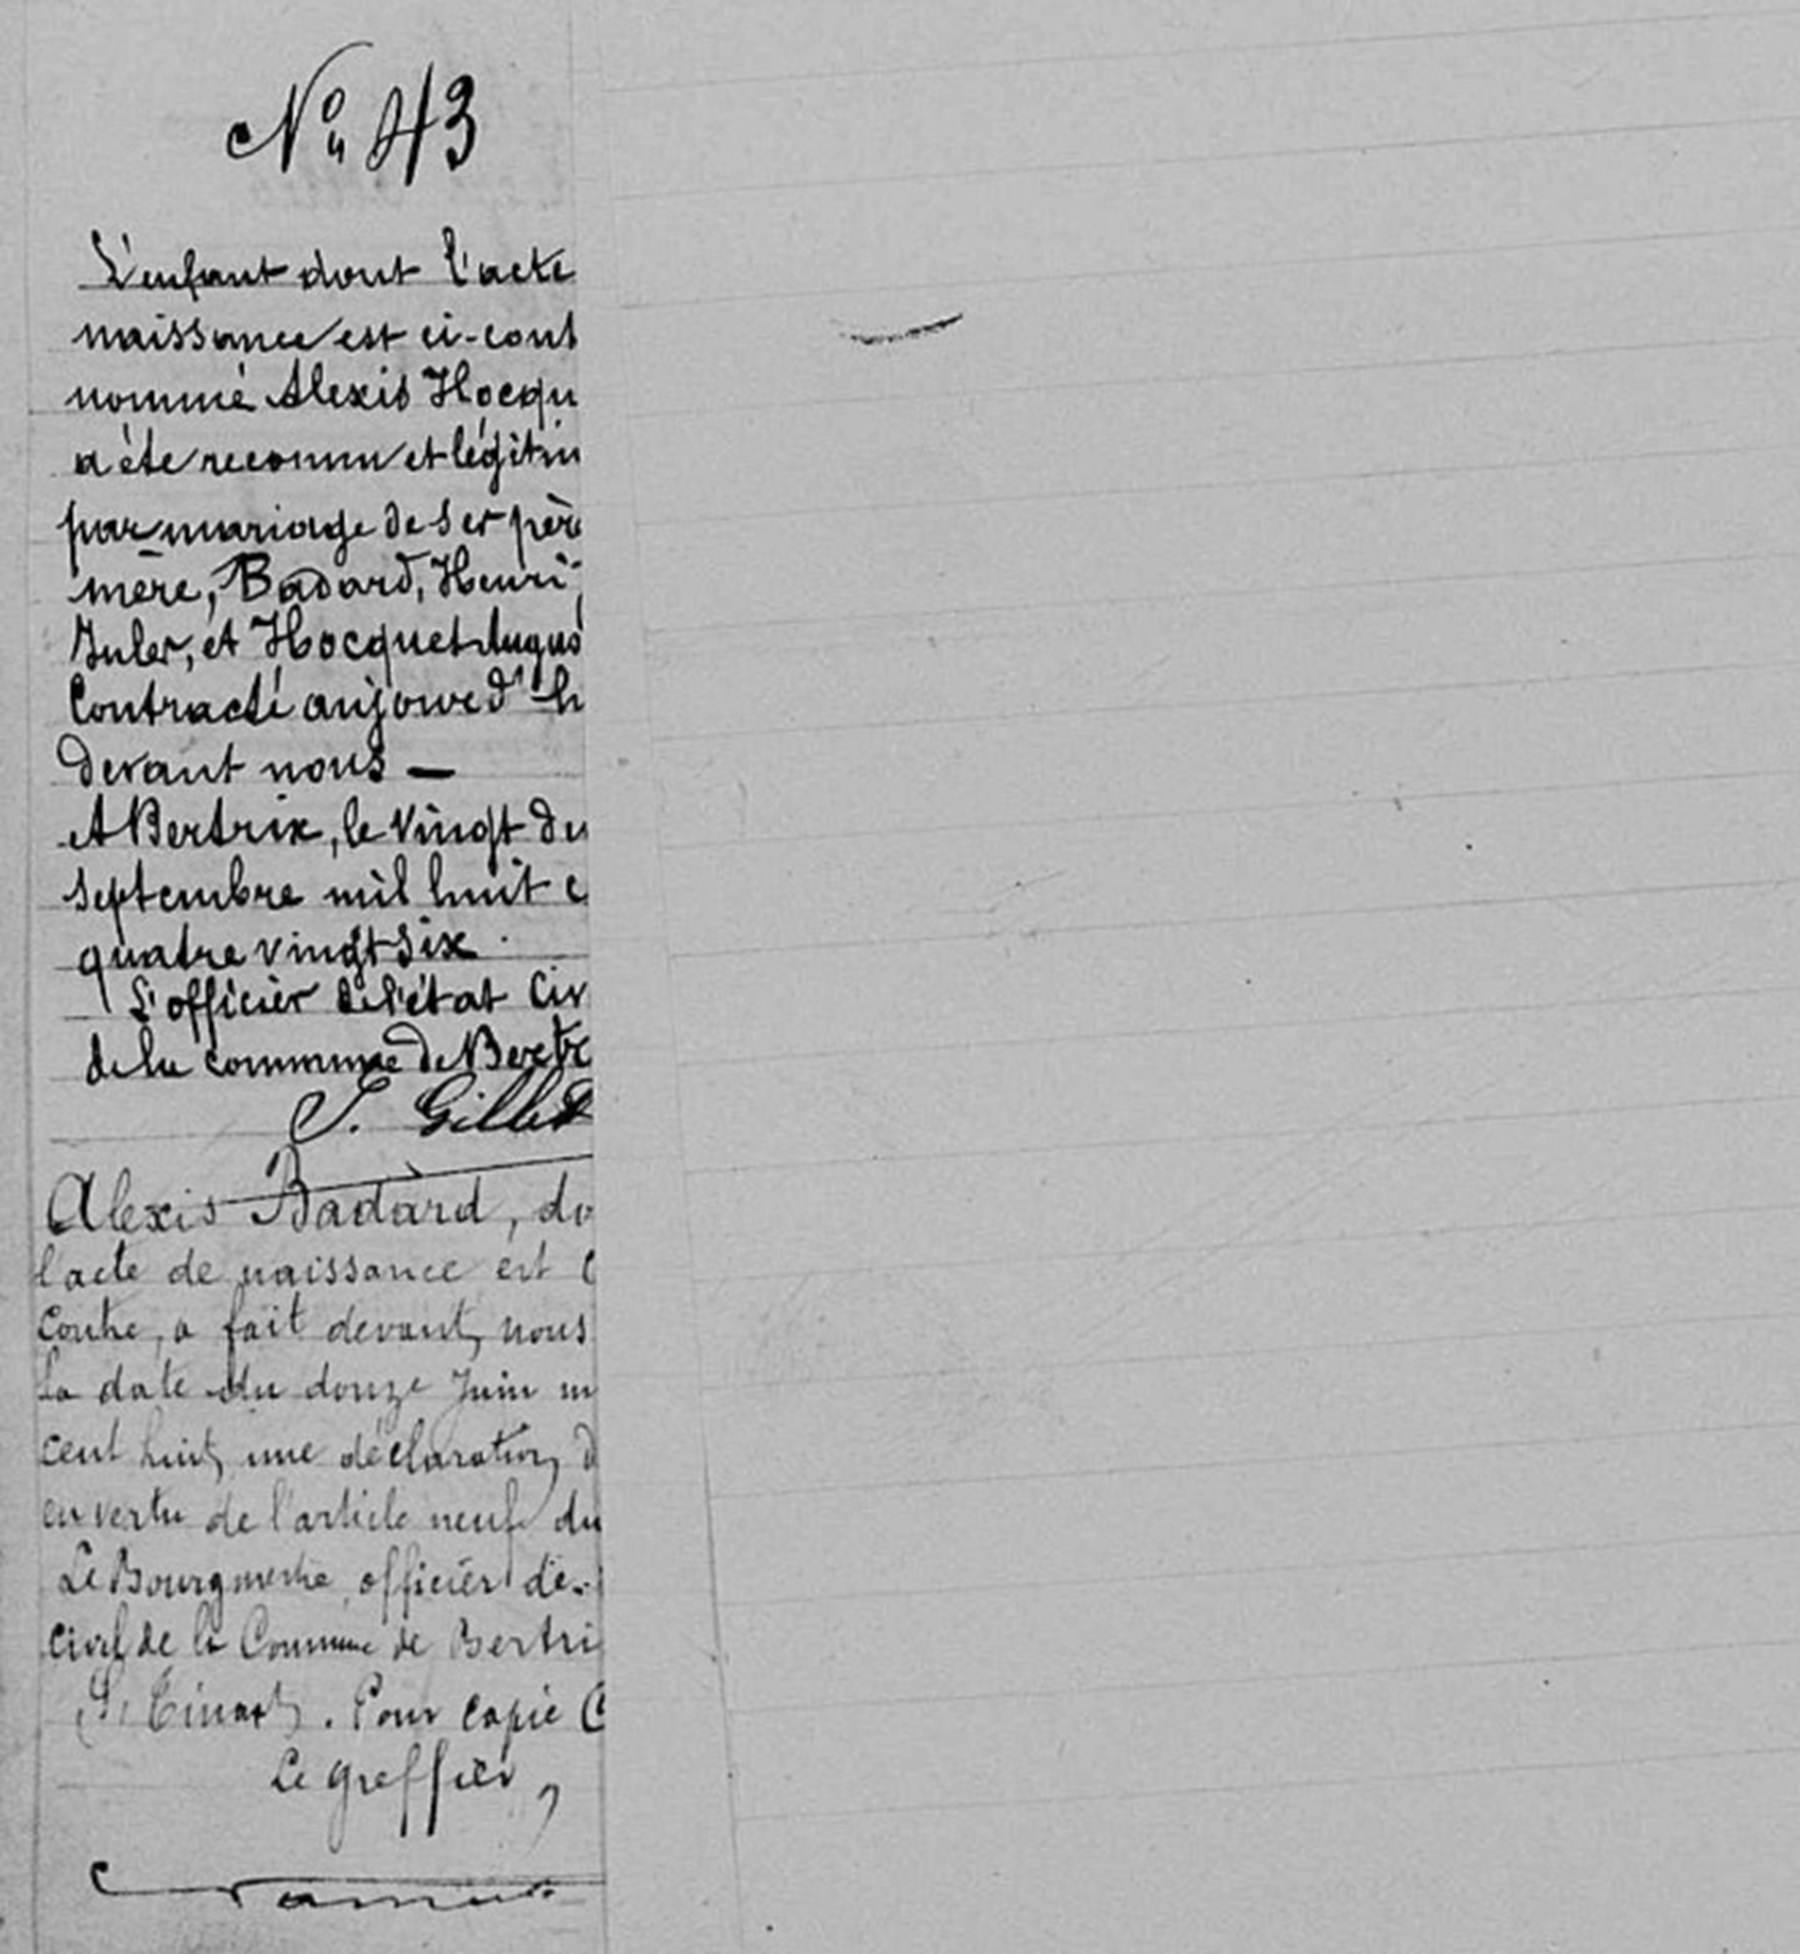 No 43
L'enfant dont l'acte
naissance est ci-cont
nommé Alexis Hocqu
a été reconnu et légitim
par mariage de ses père
mère, Badard, Henri
Jules, et Hocquet Augus
Contracté aujourd'h
devant nous —
A Bertrix, le vingt du
septembre mil huit c
quatre vingt six.
L'officier de l'état Civ
de la commune de Bertr
J. Gillet
Alexis Badard, do
l'acte de naissance est C
contre, a fait devant nous
la date du douze Juin m
cent huit, une déclaration d
en vertu de l'article neuf du
Le Bourgmestre, officier de
civil de la Commune de Bertri
Tinant. Pour copie C
Le greffier,